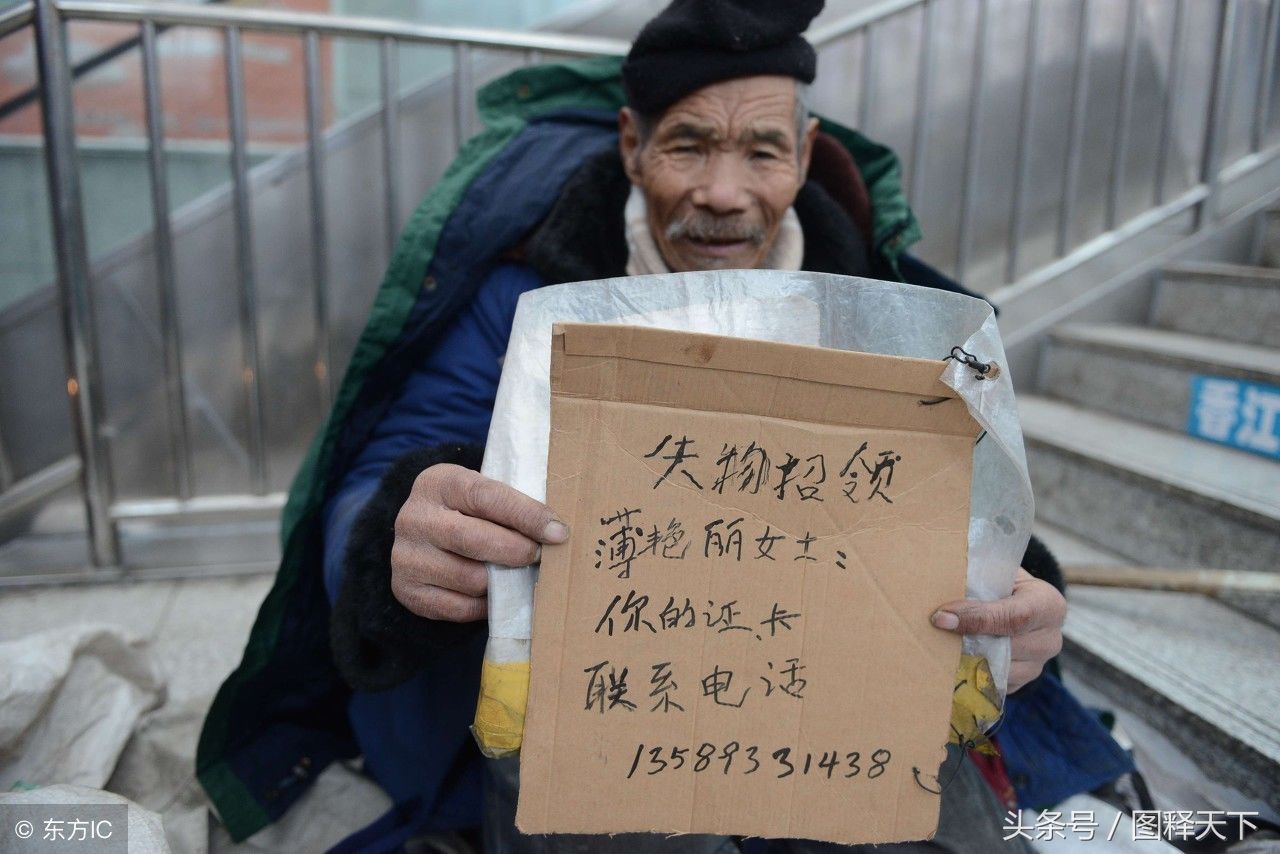 失物招领
薄艳丽女士:
你的证、卡
联系电话
13589331438
香江
© 东方IC
头条号 / 图释天下